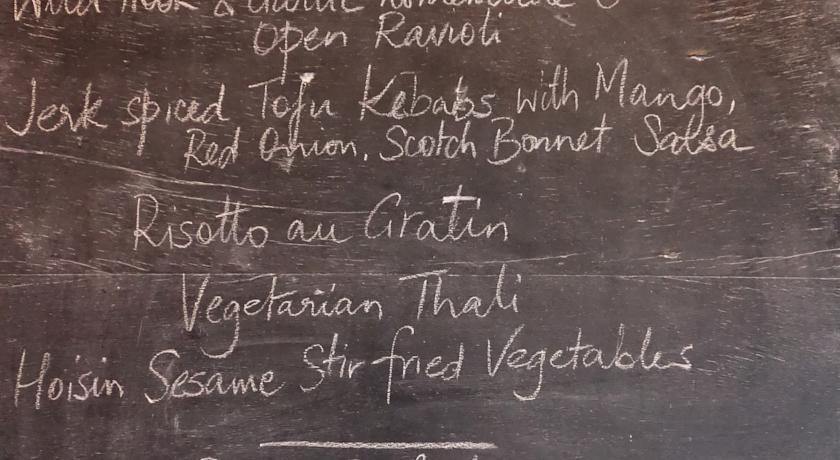 Open Ravioli
Jerk spiced Tofu Kebabs with Mango,
Red Onion, Scotch Bonnet Salsa
Risotto au Gratin
Vegetarian Thali
Hoisin Sesame Stir fried Vegetables